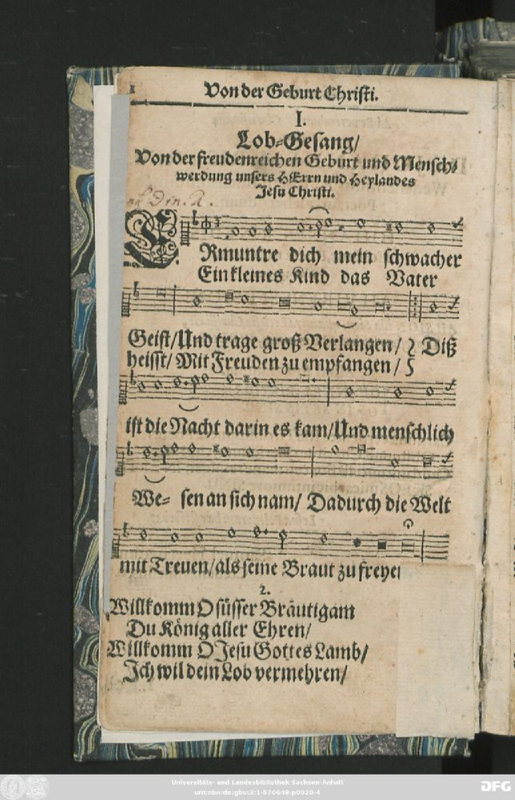 Von der Geburt Christi.
I.
Lob-Gesang/
Von der freudenreichen Geburt und Mensch-
werdung unsers HErrn und Heylandes
Jesu Christi.
ERmuntre dich mein schwacher
Ein kleines Kind das Vater
Geist/Und trage groß Verlangen/ Diß
heisst/Mit Freuden zu empfangen/
ist die Nacht darin es kam/Und menschlich
We- sen an sich nam/ Dadurch die Welt
mit Treuen/als seine Braut zu freye
2.
Willkomm O süsser Bräutigam
Du König aller Ehren/
Willkomm O Jesu Gottes Lamb/
Ich wil dein Lob vermehren/
Universitäts- und Landesbibliothek Sachsen-Anhalt
DFG